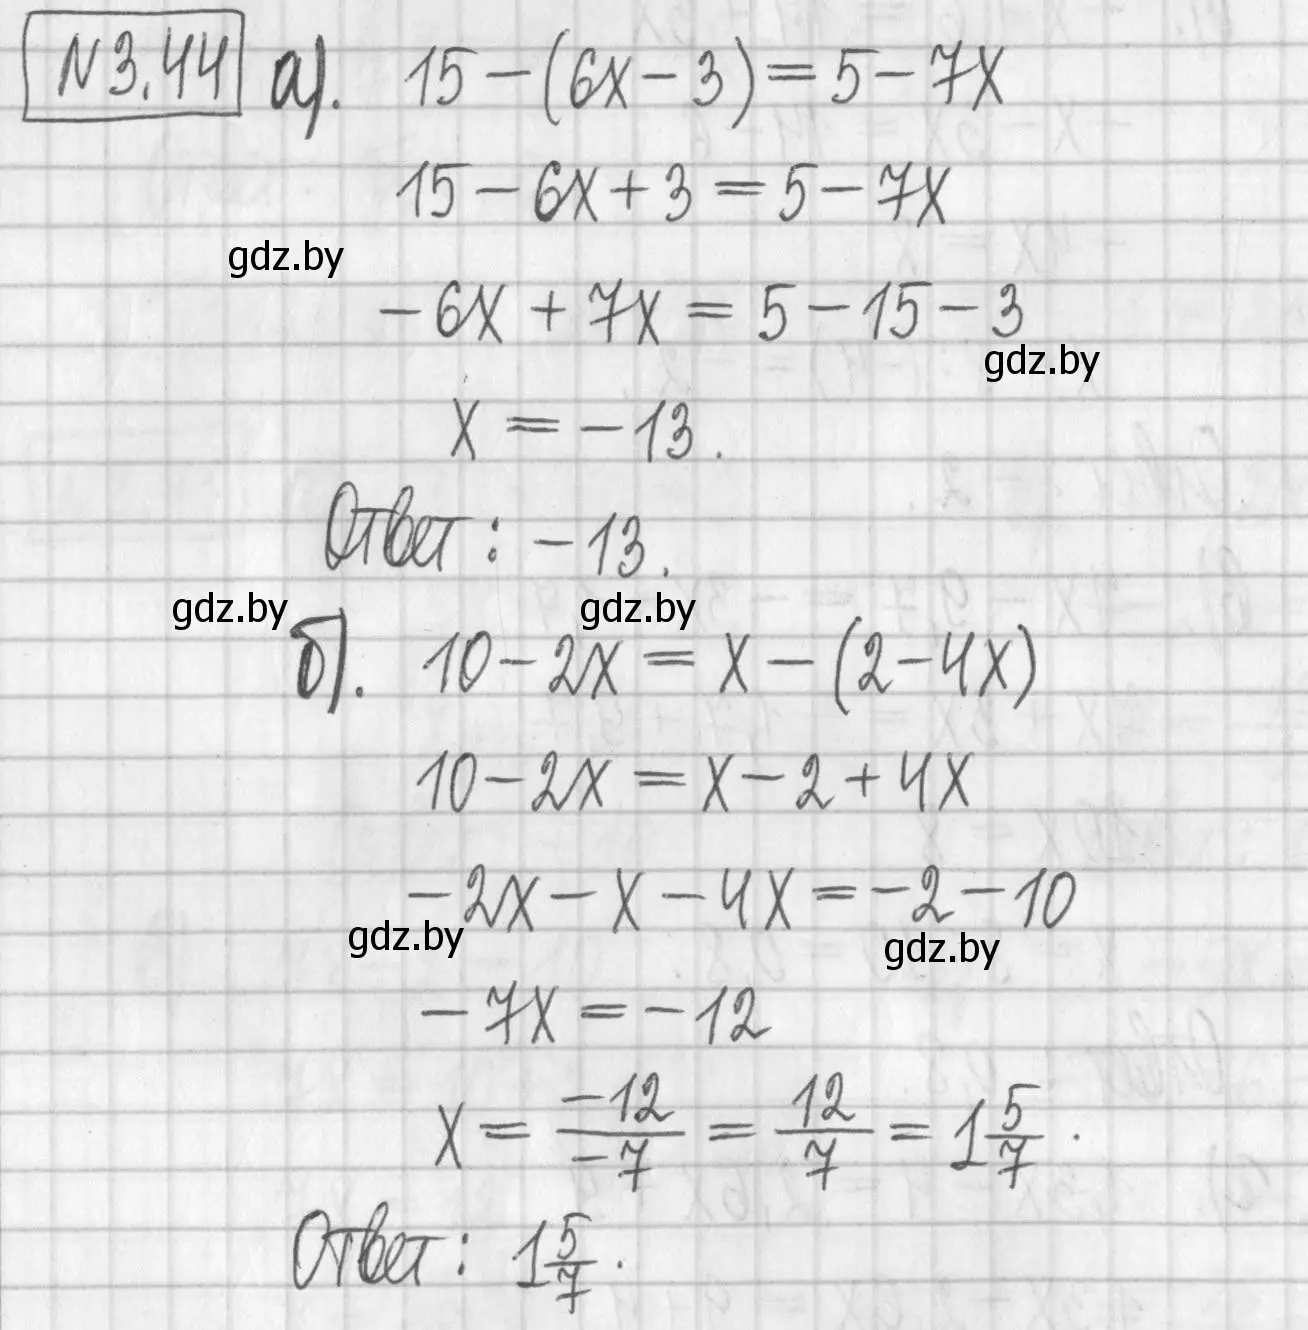 N 3.44 а). 15 - (6x - 3) = 5 - 7x
15 - 6x + 3 = 5 - 7x
gdz.by
- 6x + 7x = 5 - 15 - 3
gdz.by
x = - 13.
Ответ: - 13.
gdz.by gdz.by
б). 10 - 2x = x - (2 - 4x)
10 - 2x = x - 2 + 4x
- 2x - x - 4x = - 2 - 10
gdz.by gdz.by
- 7x = - 12
x = -12/-7 = 12/7 = 1 5/7.
Ответ: 1 5/7.